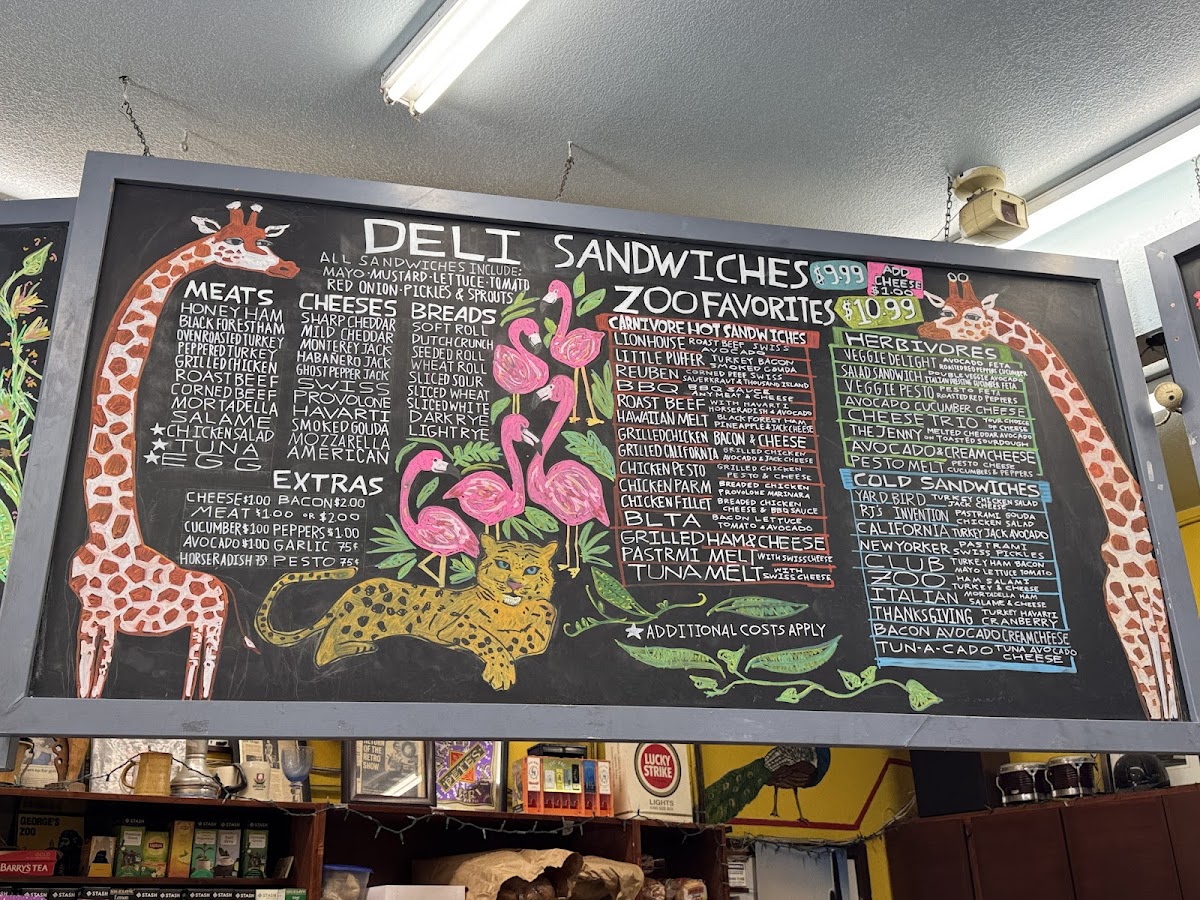 DELI SANDWICHES $9.99 ADD CHEESE $1.00
ALL SANDWICHES INCLUDE:
MAYO·MUSTARD·LETTUCE·TOMATO
RED ONION·PICKLES & SPROUTS
MEATS
HONEY HAM
BLACK FOREST HAM
OVEN ROASTED TURKEY
PEPPERED TURKEY
GRILLED CHICKEN
ROAST BEEF
CORNED BEEF
MORTADELLA
SALAME
★CHICKEN SALAD
★TUNA
★EGG
CHEESES
SHARP CHEDDAR
MILD CHEDDAR
MONTEREY JACK
HABAÑERO JACK
GHOST PEPPER JACK
SWISS
PROVOLONE
HAVARTI
SMOKED GOUDA
MOZZARELLA
AMERICAN
BREADS
SOFT ROLL
DUTCH CRUNCH
SEEDED ROLL
WHEAT ROLL
SLICED SOUR
SLICED WHEAT
SLICED WHITE
DARK RYE
LIGHT RYE
EXTRAS
CHEESE $1.00 BACON $2.00
MEAT $1.00 OR $2.00
CUCUMBER $1.00 PEPPERS $1.00
AVOCADO $1.00 GARLIC 75¢
HORSERADISH 75¢ PESTO 75¢
ZOO FAVORITES $10.99
CARNIVORE HOT SANDWICHES
LIONHOUSE ROAST BEEF SWISS AVOCADO
LITTLE PUFFER TURKEY BACON SMOKED GOUDA
REUBEN CORNED BEEF SWISS SAUERKRAUT & THOUSAND ISLAND
BBQ BBQ SAUCE ANY MEAT & CHEESE
ROAST BEEF WITH HAVARTI HORSERADISH & AVOCADO
HAWAIIAN MELT BLACK FOREST HAM PINEAPPLE & JACK CHEESE
GRILLED CHICKEN BACON & CHEESE
GRILLED CALIFORNIA GRILLED CHICKEN AVOCADO & JACK CHEESE
CHICKEN PESTO GRILLED CHICKEN PESTO & CHEESE
CHICKEN PARM BREADED CHICKEN PROVOLONE MARINARA
CHICKEN FILLET BREADED CHICKEN CHEESE & BBQ SAUCE
BLTA BACON LETTUCE TOMATO & AVOCADO
GRILLED HAM & CHEESE
PASTRMI MELT WITH SWISS CHEESE
TUNA MELT WITH SWISS CHEESE
★ADDITIONAL COSTS APPLY
HERBIVORES
VEGGIE DELIGHT AVOCADO FETA ROASTED PEPPERS CUCUMBER
SALAD SANDWICH DOUBLE VEGGIES AVOCADO ITALIAN DRESSING
VEGGIE PESTO CUCUMBERS FETA ROASTED RED PEPPERS
AVOCADO CUCUMBER CHEESE
CHEESE TRIO YOUR CHOICE OF CHEESE
THE JENNY MELTED CHEDDAR AVOCADO ON TOASTED SOURDOUGH
AVOCADO & CREAM CHEESE
PESTO MELT PESTO CHEESE CUCUMBERS & PEPPERS
COLD SANDWICHES
YARD BIRD TURKEY CHICKEN SALAD JACK CHEESE
RJ'S INVENTION PASTRAMI GOUDA CHICKEN SALAD
CALIFORNIA TURKEY JACK AVOCADO
NEW YORKER PASTRAMI SWISS PICKLES
CLUB TURKEY HAM BACON MAYO LETTUCE TOMATO
ZOO HAM SALAMI TURKEY & CHEESE
ITALIAN MORTADELLA HAM SALAME & CHEESE
THANKSGIVING TURKEY HAVARTI CRANBERRY
BACON AVOCADO CREAM CHEESE
TUN-A-CADO TUNA AVOCADO CHEESE
RETURN OF THE RETRO SHOW
LUCKY STRIKE
LIGHTS
GEORGE'S ZOO
BARRY'S TEA
STASH